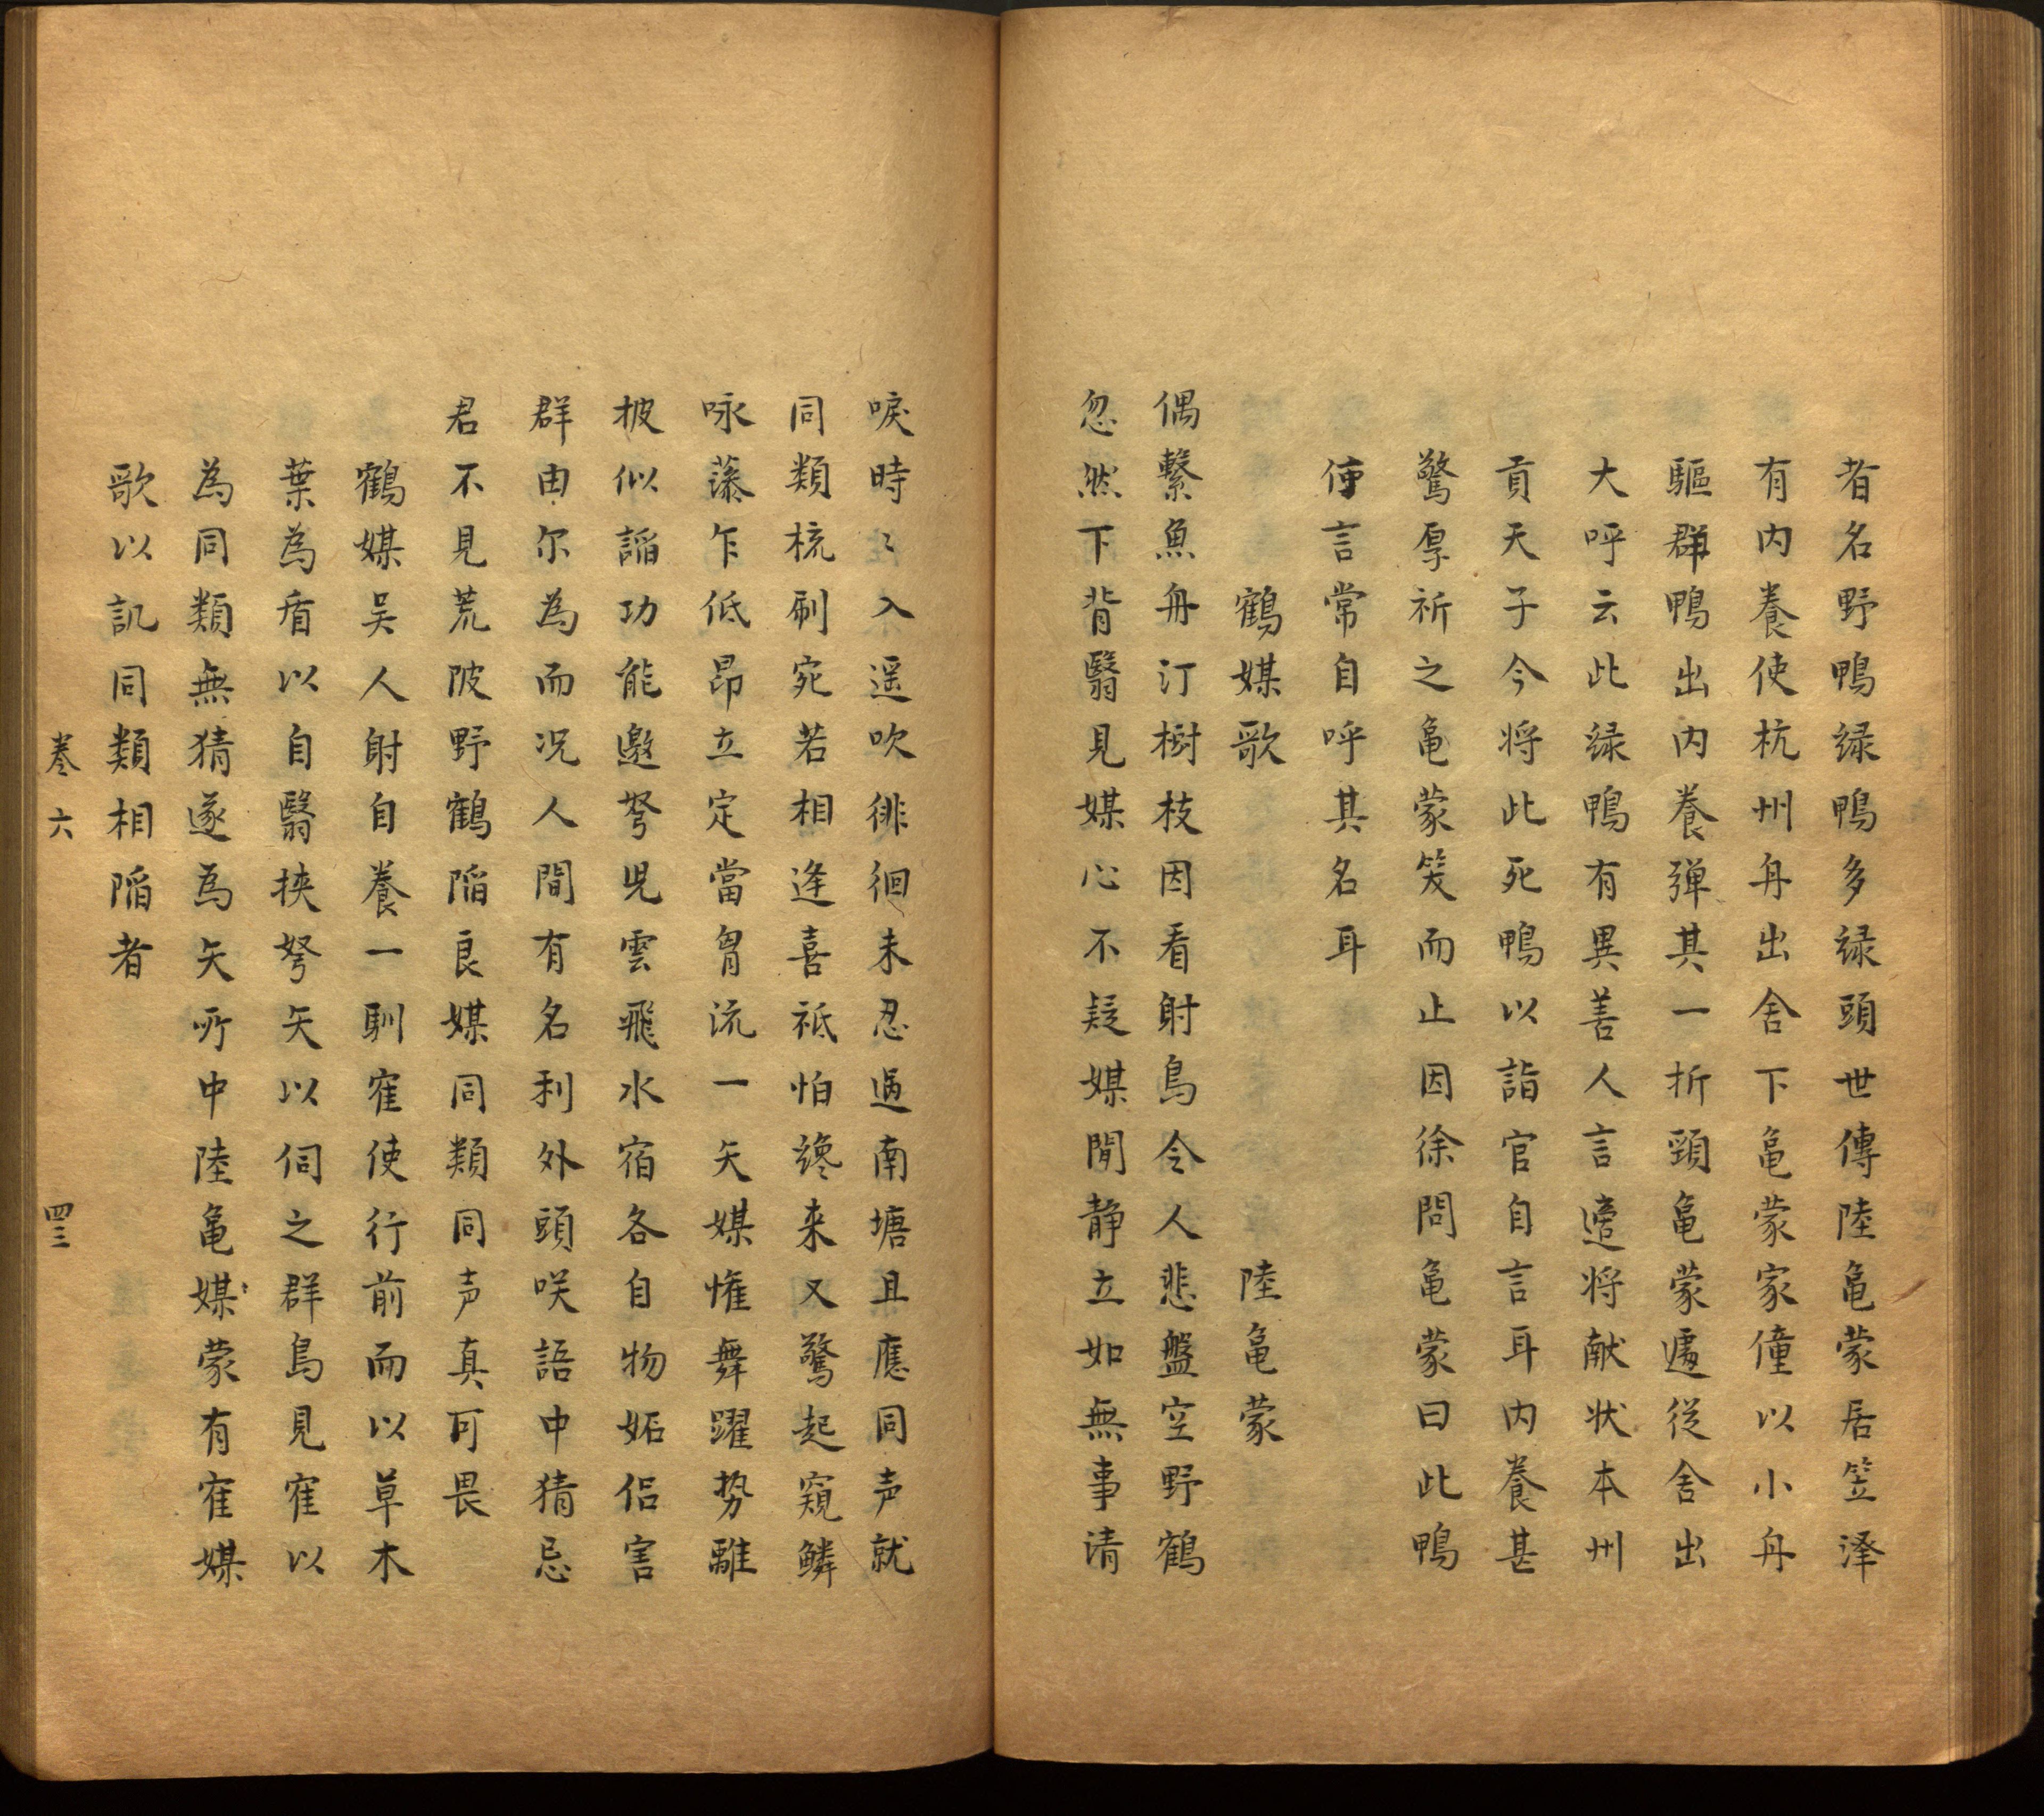 者名野鴨緑鴨多緑頭世傳陸亀蒙居笠澤
有内養使杭州舟出舍下亀蒙家僮以小舟
驅群鴨出内養弹其一折頸亀蒙遽従舍出
大呼云此緑鴨有異善人言適将献状本州
貢天子今将此死鴨以詣官自言耳内養甚
驚厚祈之亀蒙笑而止因徐問亀蒙曰此鴨
何言常自呼其名耳
鶴媒歌 陸亀蒙
偶繫魚舟汀樹枝因看射鳥令人悲盤空野鶴
忽然下背翳見媒心不疑媒閒静立如無事清
唳時〻入遥吹徘徊未忍過南塘且應同声就
同類梳刷宛若相逢喜祗怕纔来又驚起窺鱗
咏藻乍低昂立定當胷流一矢媒懽舞躍势離
披似謟功能邀弩児雲飛水宿各自物妬侶害
群由尔為而况人間有名利外頭咲語中猜忌
君不見荒陂野鶴陷良媒同類同声真可畏
鶴媒吴人射自養一馴寉使行前而以草木
葉為盾以自翳挾弩矢以伺之群鳥見寉以
為同類無猜遂為矢所中陸亀媒蒙有寉媒
歌以譏同類相陷者
卷六
四三